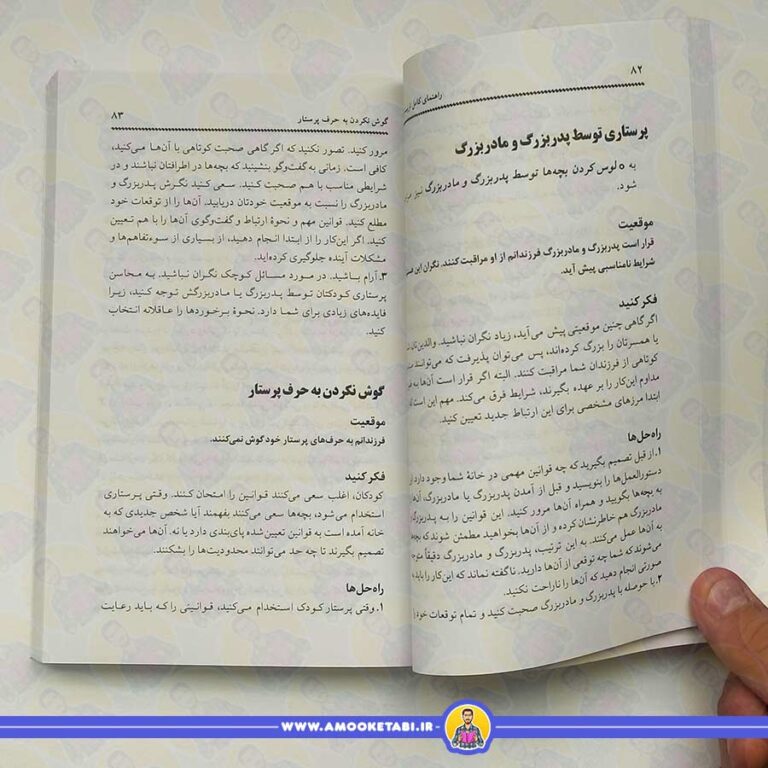 ۸۲
راهنمای کامل
پرستاری توسط پدربزرگ و مادربزرگ
به لوس کردن بچه‌ها توسط پدربزرگ و مادربزرگ نیز
شود.
موقعیت
قرار است پدربزرگ و مادربزرگ فرزندانم از او مراقبت کنند. نگران این
شرایط نامناسبی پیش آید.
فکر کنید
اگر گاهی چنین موقعیتی پیش می‌آید، زیاد نگران نباشید. والدین‌تان
یا همسرتان را بزرگ کرده‌اند، پس می‌توان پذیرفت که می‌توانند
کوتاهی از فرزندان شما مراقبت کنند. البته اگر قرار است آن‌ها به
مداوم این‌کار را بر عهده بگیرند، شرایط فرق می‌کند. مهم این است
ابتدا مرزهای مشخصی برای این ارتباط جدید تعیین کنید.
راه‌حل‌ها
۱. از قبل تصمیم بگیرید که چه قوانین مهمی در خانهٔ شما وجود دارد
دستورالعمل‌ها را بنویسید و قبل از آمدن پدربزرگ یا مادربزرگ، آن
به بچه‌ها بگویید و همراه آن‌ها مرور کنید. این قوانین را به پدربزرگ
مادربزرگ هم خاطرنشان کرده و از آن‌ها بخواهید مطمئن شوند که
به آن‌ها عمل می‌کنند. به این ترتیب، پدربزرگ و مادربزرگ دقیقاً
می‌شوند که شما چه توقعی از آن‌ها دارید. ناگفته نماند که این‌کار را باید
صورتی انجام دهید که آن‌ها را ناراحت نکنید.
۲. با حوصله با پدربزرگ و مادربزرگ صحبت کنید و تمام توقعات خود
۸۳
گوش نکردن به حرف پرستار
مرور کنید. تصور نکنید که اگر گاهی صحبت کوتاهی با آن‌ها می‌کنید،
کافی است. زمانی به گفت‌وگو بنشینید که بچه‌ها در اطرافتان نباشند و در
شرایطی مناسب با هم صحبت کنید. سعی کنید نگرش پدربزرگ و
مادربزرگ را نسبت به موقعیت خودتان دریابید. آن‌ها را از توقعات خود
مطلع کنید. قوانین مهم و نحوهٔ ارتباط و گفت‌وگوی آن‌ها را با هم تعیین
کنید. اگر این‌کار را از ابتدا انجام دهید، از بسیاری از سوءتفاهم‌ها و
مشکلات آینده جلوگیری کرده‌اید.
۳. آرام باشید. در مورد مسائل کوچک نگران نباشید. به محاسن
پرستاری کودکتان توسط پدربزرگ یا مادربزرگش توجه کنید، زیرا
فایده‌های زیادی برای شما دارد. نحوهٔ برخوردها را عاقلانه انتخاب
کنید.
گوش نکردن به حرف پرستار
موقعیت
فرزندانم به حرف‌های پرستار خود گوش نمی‌کنند.
فکر کنید
کودکان، اغلب سعی می‌کنند قوانین را امتحان کنند. وقتی پرستاری
استخدام می‌شود، بچه‌ها سعی می‌کنند بفهمند آیا شخص جدیدی که به
خانه آمده است به قوانین تعیین‌شده پای‌بندی دارد یا نه. آن‌ها می‌خواهند
تصمیم بگیرند تا چه حد می‌توانند محدودیت‌ها را بشکنند.
راه‌حل‌ها
۱. وقتی پرستار کودک استخدام می‌کنید، قوانینی را که باید رعایت
WWW.AMOOKETABI.IR